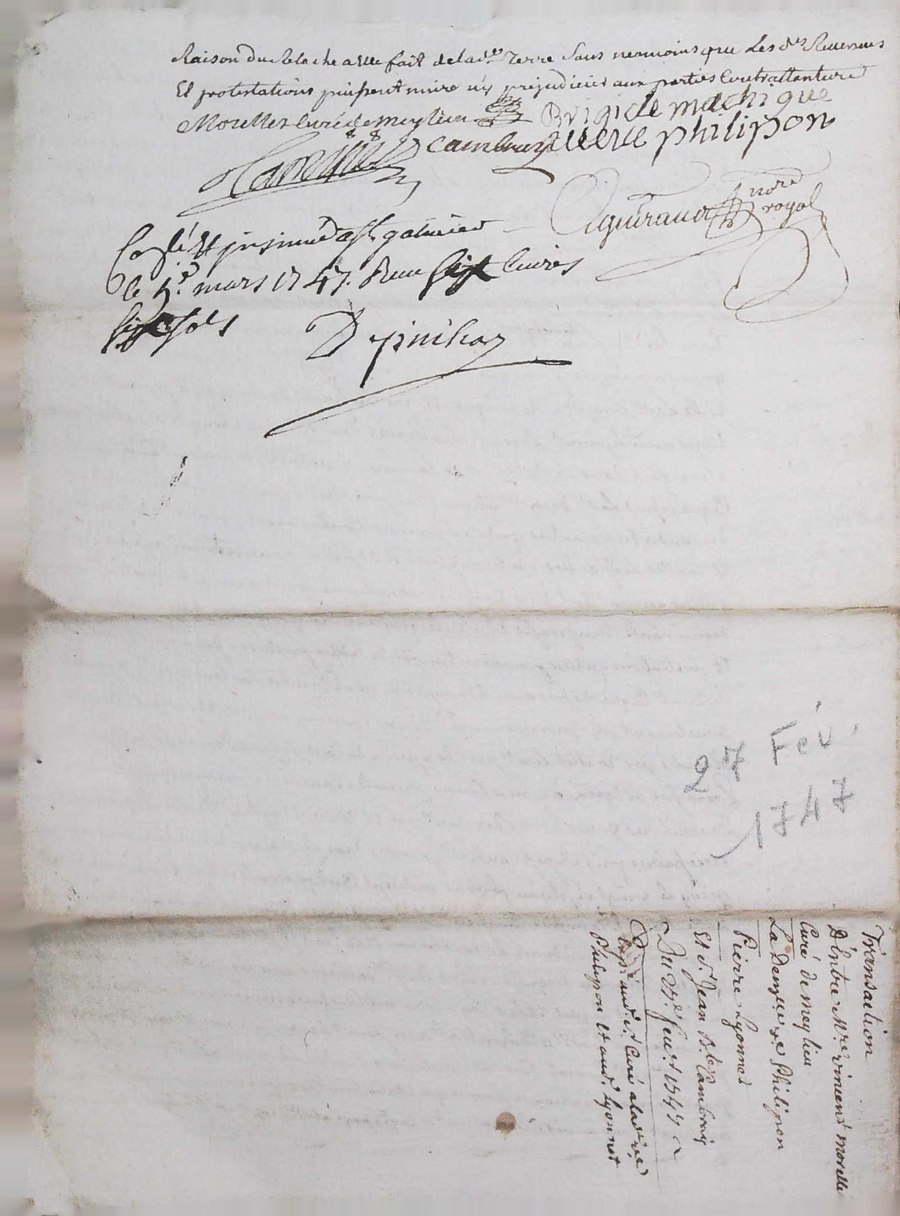 Raison du Relache a elle fait de lad.te Terre Sans neanmoins que Les d.es Reserves
Et protestations puissent nuire n'y prejudicier aux parties Contractantes
Morelles curé de meylieu Brigide machique
Cambray veuve philipon
Eyguiraud nore
royal
Conllé Et insinué a St galmier
le 4e. mars 1747. Reçu six livres
six sols
Depinhac
27 Fév.
1747
Transaction
D'Entre Mre. vincent morelle
Curé de meylieu
La Demze. ve. Philipon
Pierre Lyonnet
Et s. Jean B.te Cambray
Du 27e. fevr. 1747
aud. s. Curé a lad. ve.
Philippon et aud. Lyonnet